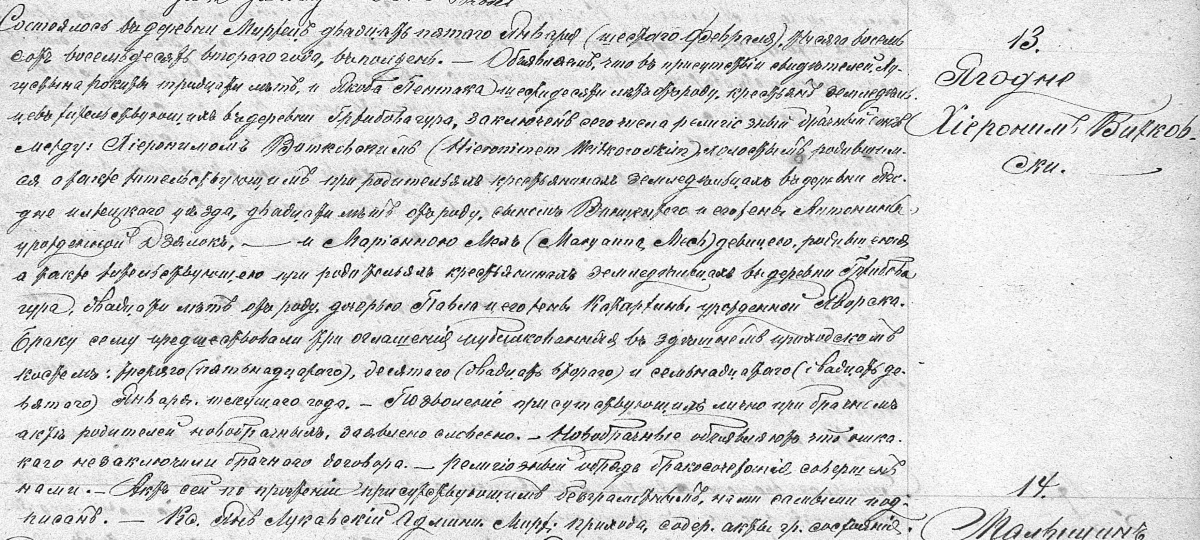 Состоялось въ деревни Мирженъ двадцать пятаго Января (шестаго февраля), тысяча восемь
сотъ восемьдесятъ втораго года, въ полдень. — Объявляемъ, что въ присутствіи свидѣтелей,
тридцати лѣтъ, и Якова Пентака шестидесяти лѣтъ отроду, крестьянъ земледѣль
цевъ жительствующихъ въ деревни Грибовагура, заключенъ сего числа религіозный брачный союзъ
между: Хіеронимомъ Витковскимъ (Hieronimem Witkowskim) холостымъ родившим
ся а также жительствующимъ при родительяхъ крестьянинахъ земледѣльцахъ въ деревни Яго
дне илжецкого уѣзда, двадцати лѣтъ отроду, сыномъ Винцентего и его жены Антонины
урожденной Дзялокъ. — и Маріанною Мехъ (Maryanną Mech) девицею, родившеюся
а также жительствующею при родительяхъ крестьянинахъ земледѣльцахъ въ деревни Грибова
гура, двадцати лѣтъ отроду, дочерью Павла и его жены Катаржины урожденной Яворска.
Браку сему предшествовали три оглашенія публикованныя въ здѣшнемъ приходскомъ
костелѣ: третяго (пятьнадцатого), десятаго (двадцать втораго) и семьнадцатаго (двадцать де
вятаго) Января текущаго года. — Позволеніе присутствующихъ лично при брачномъ
актѣ родителей новобрачныхъ, заявлено словесно. — Новобрачные объявляютъ что ника
каго незаключили брачного договора. — религіозный обрядъ бракосочетанія совершенъ
нами. — Актъ сей по прочтеніи присутствующимъ безграмотнымъ, нами самыми под
писанъ. — Кс. Янъ Лукавскій Админ. Мирж. прихода, содер. акты гр. состоянія.
13.
Ягодне
Хіеронимъ Витков-
ски.
14.